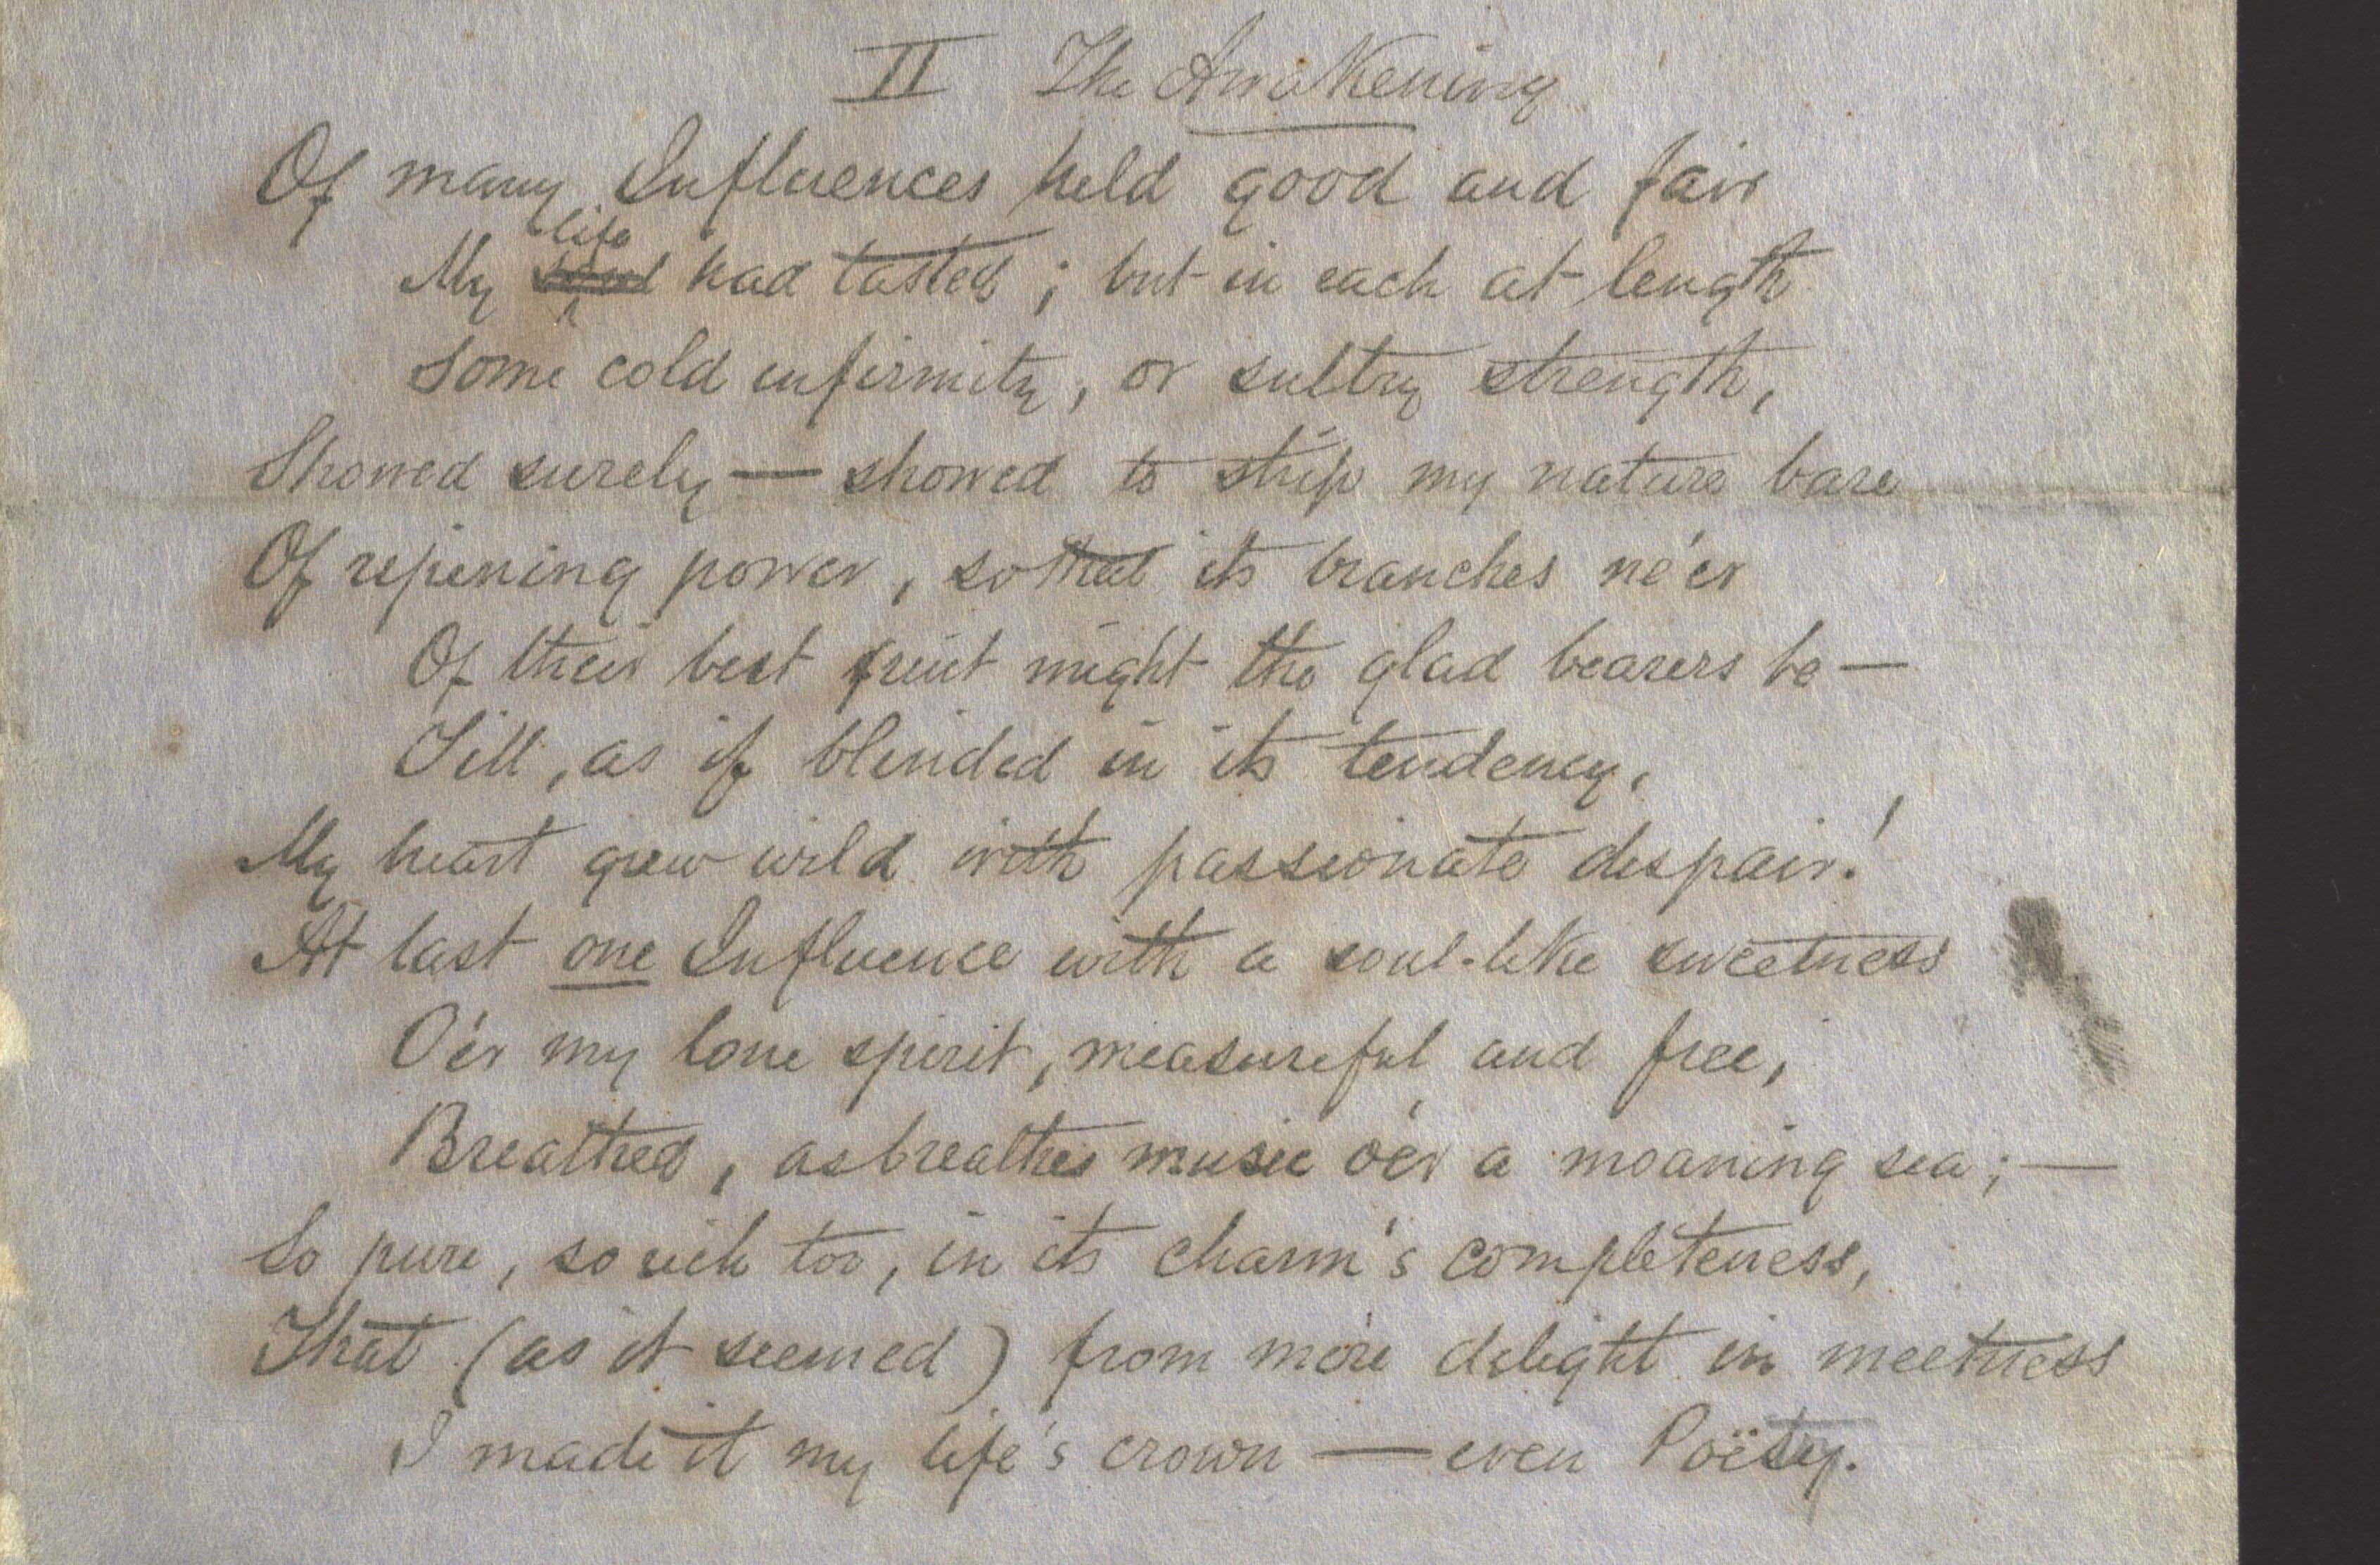 II The Awakening
Of many Influences held good and fair
life
My soul had tasted; but in each at length
Some cold infirmity, or sultry strength,
Showed surely — showed to strip my nature bare
Of ripening power, so that its branches ne'er
Of their best fruit might the glad bearers be —
Till, as if blinded in its tendency,
My heart grew wild with passionate despair!
At last one Influence with a soul-like sweetness
O'er my lone spirit, measureful and free,
Breathed, as breathes music o'er a moaning sea; —
So pure, so rich too, in its charm's completeness,
That (as it seemed) from mere delight in meetness
I made it my life's crown — even Poësy.